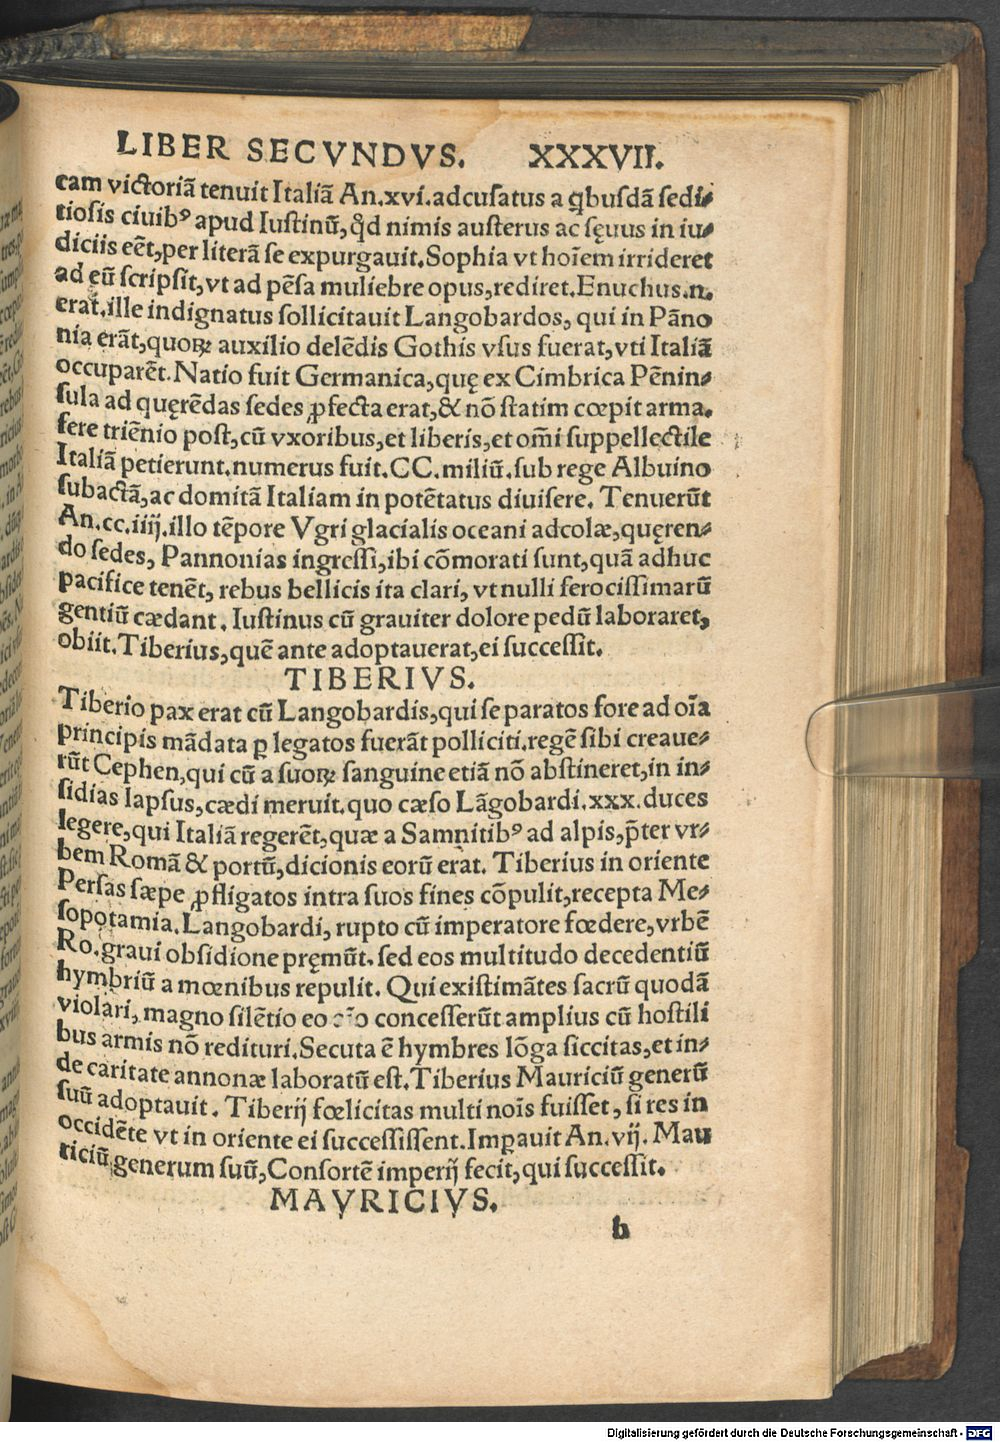 LIBER SECVNDVS. XXXVII.
eam victoriā tenuit Italiā An.xvi.adcusatus a q̄busdā sedi⸗
tiosis ciuibꝰ apud Iustinū, q̄d nimis austerus ac sęuus in iu⸗
diciis eēt,per literā se expurgauit.Sophia vt hoīem irrideret
ad eū scripsit,vt ad pēsa muliebre opus,rediret.Enuchus.n.
erat.ille indignatus sollicitauit Langobardos, qui in Pāno
nia erāt,quoꝝ auxilio delēdis Gothis vsus fuerat,vti Italiā
occuparēt.Natio fuit Germanica,quę ex Cimbrica Pēnin⸗
sula ad quęrēdas sedes ꝓfecta erat,& nō statim cœpit arma.
fere triēnio post,cū vxoribus,et liberis,et om̄i suppellectile
Italiā petierunt.numerus fuit.CC.miliū.sub rege Albuino
subactā,ac domitā Italiam in potētatus diuisere. Tenuerūt
An.cc.iiij.illo tēpore Vgri glacialis oceani adcolæ,quęren⸗
do sedes, Pannonias ingressi,ibi cōmorati sunt,quā adhuc
pacifice tenēt, rebus bellicis ita clari, vt nulli ferocissimarū
gentiū cædant. Iustinus cū grauiter dolore pedū laboraret,
obiit.Tiberius,quē ante adoptauerat,ei successit.
TIBERIVS.
Tiberio pax erat cū Langobardis,qui se paratos fore ad oīa
principis mādata ꝑ legatos fuerāt polliciti.regē sibi creaue⸗
rūt Cephen,qui cū a suoꝝ sanguine etiā nō abstineret,in in⸗
sidias lapsus,cædi meruit.quo cæso Lāgobardi.xxx.duces
legere,qui Italiā regerēt,quæ a Samnitibꝰ ad alpis,p̄ter vr⸗
bem Romā & portū,dicionis eorū erat. Tiberius in oriente
Persas sæpe ꝓfligatos intra suos fines cōpulit,recepta Me⸗
sopotamia.Langobardi, rupto cū imperatore fœdere,vrbē
Ro.graui obsidione pręmūt.sed eos multitudo decedentiū
hymbriū a mœnibus repulit. Qui existimātes sacrū quodā
violari, magno silētio eo concesserūt amplius cū hostili
bus armis nō redituri.Secuta ē hymbres lōga siccitas,et in⸗
de caritate annonæ laboratū est.Tiberius Mauriciū generū
suū adoptauit. Tiberij fœlicitas multi noīs fuisset, si res in
occidēte vt in oriente ei successissent.Imꝑauit An.vij. Mau
riciū generum suū,Consortē imperij fecit,qui successit.
MAVRICIVS.
h
Digitalisierung gefördert durch die Deutsche Forschungsgemeinschaft - DFG